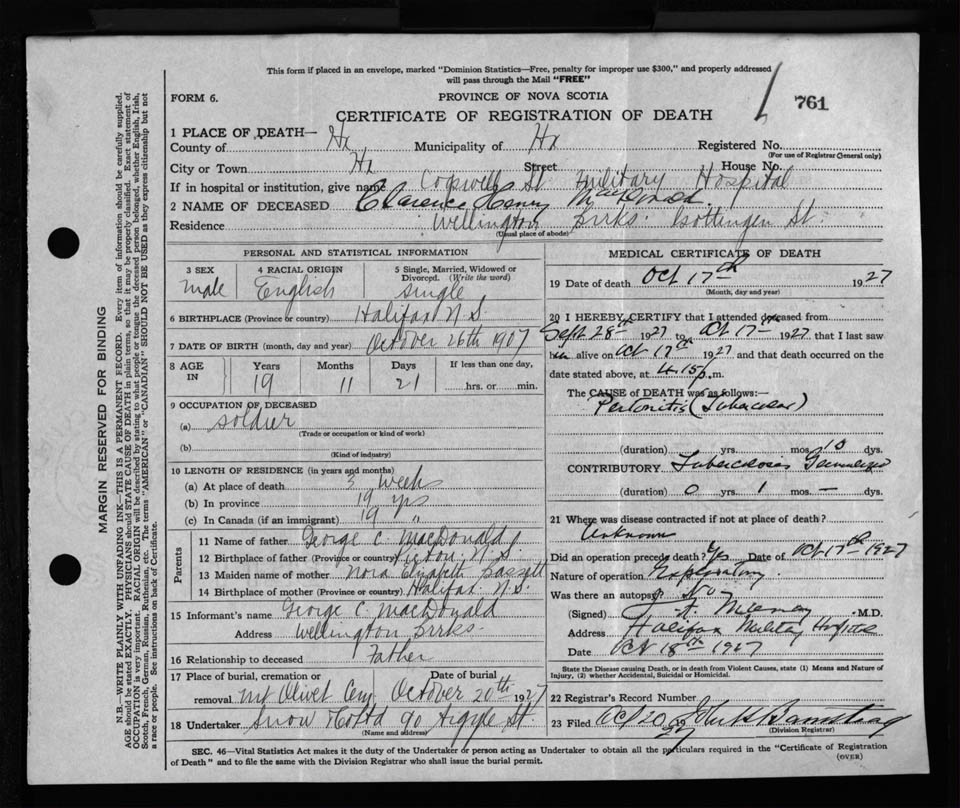 This form if placed in an envelope, marked "Dominion Statistics—Free, penalty for improper use $300," and properly addressed
will pass through the Mail "FREE"
FORM 6.
PROVINCE OF NOVA SCOTIA
761
CERTIFICATE OF REGISTRATION OF DEATH
1 PLACE OF DEATH—
County of Hx Municipality of Hx Registered No.
(For use of Registrar General only)
City or Town Hx Street House No.
If in hospital or institution, give name Cogswell St. Military Hospital
2 NAME OF DECEASED Clarence Henry MacDonald
Residence Wellington Brks. Gottingen St.
(Usual place of abode)
PERSONAL AND STATISTICAL INFORMATION
3 SEX 4 RACIAL ORIGIN 5 Single, Married, Widowed or Divorced. (Write the word)
Male English Single
6 BIRTHPLACE (Province or country) Halifax N.S.
7 DATE OF BIRTH (month, day and year) October 26th 1907
8 AGE IN Years Months Days If less than one day,
19 11 21 hrs. or min.
9 OCCUPATION OF DECEASED
(a) Soldier
(Trade or occupation or kind of work)
(b)
(Kind of industry)
10 LENGTH OF RESIDENCE (in years and months)
(a) At place of death 3 weeks
(b) In province 19 yrs
(c) In Canada (if an immigrant) 19 "
Parents
11 Name of father George C. MacDonald
12 Birthplace of father (Province or country) Pictou, N.S.
13 Maiden name of mother Nora Elizabeth Bassett
14 Birthplace of mother (Province or country) Halifax N.S.
15 Informant's name George C. MacDonald
Address Wellington Brks.
16 Relationship to deceased Father
17 Place of burial, cremation or removal Mt Olivet Cem Date of burial October 20th 1927
18 Undertaker Snow & Co Ltd 90 Argyle St.
(Name and address)
MEDICAL CERTIFICATE OF DEATH
19 Date of death Oct 17th 1927
(Month, day and year)
20 I HEREBY CERTIFY that I attended deceased from
Sept. 28th 1927 to Oct 17th 1927 that I last saw
him alive on Oct 17th 1927 and that death occurred on the
date stated above, at 4.15 p.m.
The CAUSE OF DEATH was as follows:
Peritonitis (Tubercular)
(duration) yrs. mos 10 dys.
CONTRIBUTORY Tuberculosis Generalized
(duration) 0 yrs. 1 mos — dys.
21 Where was disease contracted if not at place of death?
Unknown
Did an operation precede death? Yes Date of Oct 17th 1927
Nature of operation Exploratory
Was there an autopsy? No
(Signed) M.D.
Address Halifax Military Hospital
Date Oct 18th 1927
State the Disease causing Death, or in death from Violent Causes, state (1) Means and Nature of
Injury, (2) whether Accidental, Suicidal or Homicidal.
22 Registrar's Record Number
23 Filed Oct 20 1927
(Division Registrar)
SEC. 46—Vital Statistics Act makes it the duty of the Undertaker or person acting as Undertaker to obtain all the particulars required in the "Certificate of Registration
of Death" and to file the same with the Division Registrar who shall issue the burial permit.
(OVER)
MARGIN RESERVED FOR BINDING
N.B.—WRITE PLAINLY WITH UNFADING INK—THIS IS A PERMANENT RECORD. Every item of information should be carefully supplied.
AGE should be stated EXACTLY. PHYSICIANS should STATE CAUSE OF DEATH in plain terms, so that it may be properly classified. Exact statement of
OCCUPATION is very important. RACIAL ORIGIN will be described by stating to what people or tongue the deceased person belonged, whether English, Irish,
Scotch, French, German, Russian, Ruthenian, etc. The terms "AMERICAN" or "CANADIAN" SHOULD NOT BE USED as they express citizenship but not
a race or people. See instructions on back of Certificate.